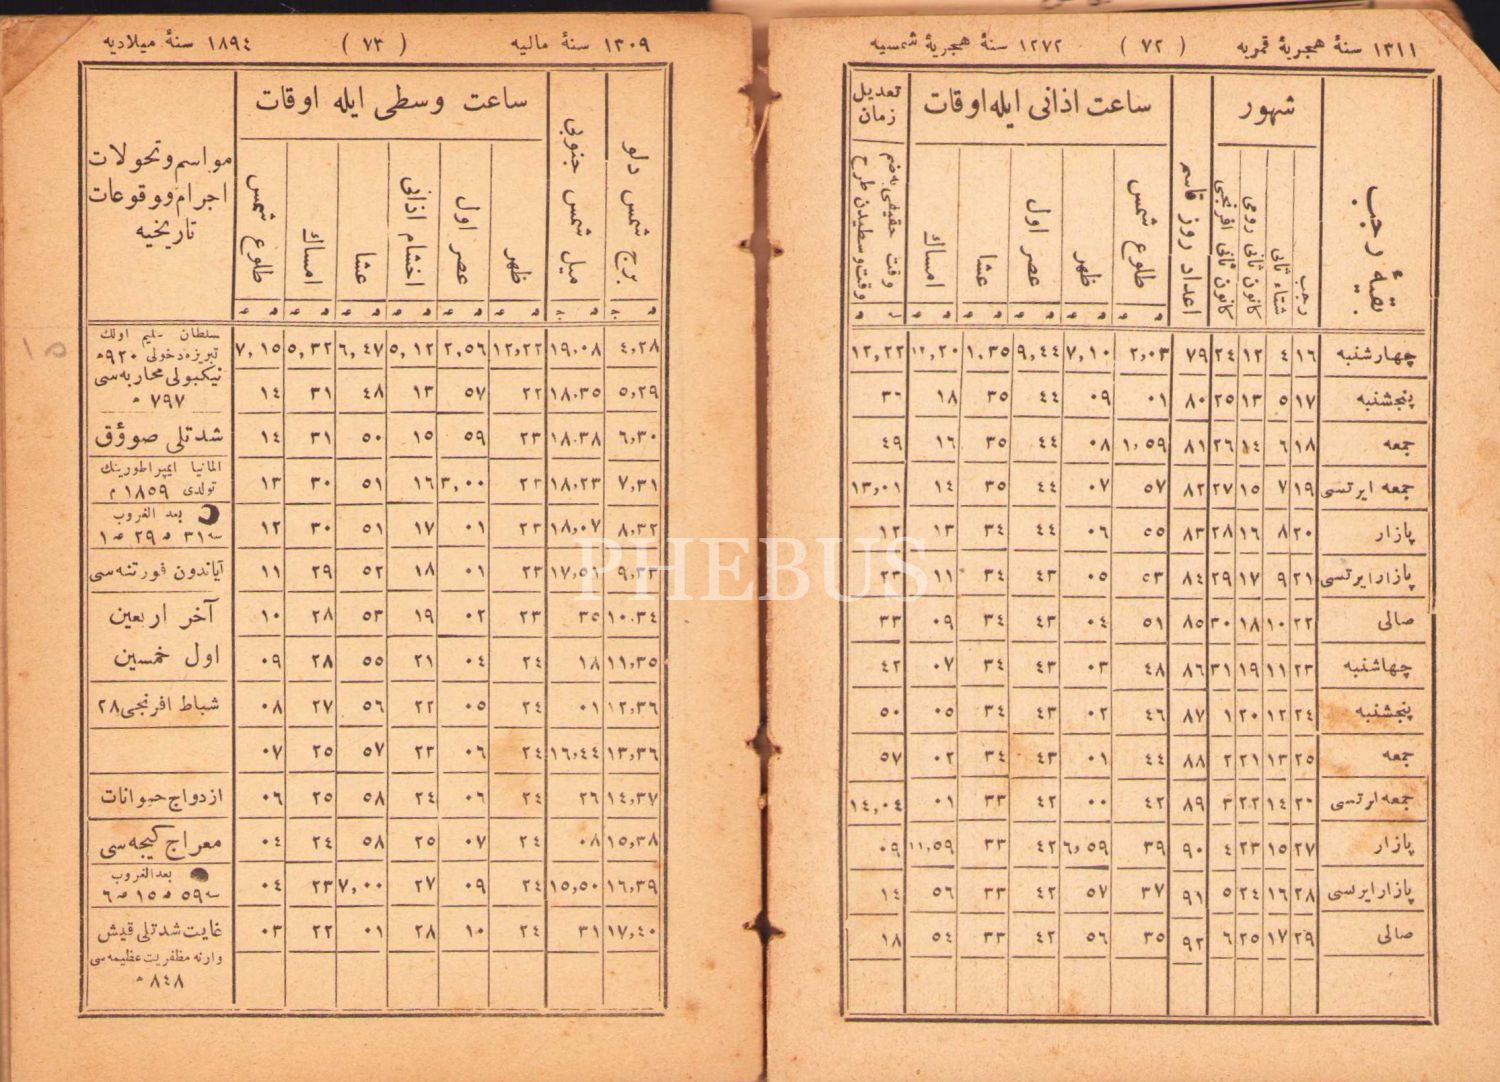 ١٣١١ سنهٔ هجریهٔ قمریه ( ٧٢ ) ١٢٧٢ سنهٔ هجریهٔ شمسیه
بقیهٔ رجب
شهور
رجب
شتاء ثانی
كانون ثانی رومی
كانون ثانی افرنجی
اعداد روز قاسم
ساعت اذانی ایله اوقات
طلوع شمس
ظهر
عصر اول
عشا
امساك
تعدیل زمان
وقت حقیقی یه ضم
وقت وسطیدن طرح
چهارشنبه ١٦ ٤ ١٢ ٢٤ ٧٩ ٢,٠٣ ٧,١٠ ٩,٤٤ ١,٣٥ ١٢,٢٠ ١٢,٢٢
پنجشنبه ١٧ ٥ ١٣ ٢٥ ٨٠ ٠١ ٠٩ ٤٤ ٣٥ ١٨ ٣٦
جمعه ١٨ ٦ ١٤ ٢٦ ٨١ ١,٥٩ ٠٨ ٤٤ ٣٥ ١٦ ٤٩
جمعه ایرتسی ١٩ ٧ ١٥ ٢٧ ٨٢ ٥٧ ٠٧ ٤٤ ٣٥ ١٤ ١٣,٠١
پازار ٢٠ ٨ ١٦ ٢٨ ٨٣ ٥٥ ٠٦ ٤٤ ٣٤ ١٣ ١٢
پازار ایرتسی ٢١ ٩ ١٧ ٢٩ ٨٤ ٥٣ ٠٥ ٤٣ ٣٤ ١١ ٢٣
صالی ٢٢ ١٠ ١٨ ٣٠ ٨٥ ٥١ ٠٤ ٤٣ ٣٤ ٠٩ ٣٣
چهاشنبه ٢٣ ١١ ١٩ ٣١ ٨٦ ٤٨ ٠٣ ٤٣ ٣٤ ٠٧ ٤٢
پنجشنبه ٢٤ ١٢ ٢٠ ١ ٨٧ ٤٦ ٠٢ ٤٣ ٣٤ ٠٥ ٥٠
جمعه ٢٥ ١٣ ٢١ ٢ ٨٨ ٤٤ ٠١ ٤٣ ٣٤ ٠٢ ٥٧
جمعه ارتسی ٢٦ ١٤ ٢٢ ٣ ٨٩ ٤٢ ٠٠ ٤٢ ٣٣ ٠١ ١٤,٠٤
پازار ٢٧ ١٥ ٢٣ ٤ ٩٠ ٣٩ ٦,٥٩ ٤٢ ٣٣ ١١,٥٩ ٠٩
پازار ایرتسی ٢٨ ١٦ ٢٤ ٥ ٩١ ٣٧ ٥٧ ٤٢ ٣٣ ٥٦ ١٤
صالی ٢٩ ١٧ ٢٥ ٦ ٩٢ ٣٥ ٥٦ ٤٢ ٣٣ ٥٤ ١٨
١٣٠٩ سنهٔ مالیه ( ٧٣ ) ١٨٩٤ سنهٔ میلادیه
برج شمس دلو
میل شمس جنوبی
ساعت وسطی ایله اوقات
ظهر
عصر اول
اخشام اذانی
عشا
امساك
طلوع شمس
مواسم وتحولات
اجرام ووقوعات
تاریخیه
٤,٢٨ ١٩,٠٨ ١٢,٢٢ ٢,٥٦ ٥,١٢ ٦,٤٧ ٥,٣٢ ٧,١٥
سلطان سلیم اولك
تبریزه دخولی ٩٢٠ ھ
٥,٢٩ ١٨,٣٥ ٢٢ ٥٧ ١٣ ٤٨ ٣١ ١٤
نیكبولی محاربه سی
٧٩٧ ھ
٦,٣٠ ١٨,٣٨ ٢٣ ٥٩ ١٥ ٥٠ ٣١ ١٤ شدتلی صوؤق
٧,٣١ ١٨,٢٣ ٢٣ ٣,٠٠ ١٦ ٥١ ٣٠ ١٣
المانیا ایمپراطورینك
تولدی ١٨٥٩ م
٨,٣٢ ١٨,٠٧ ٢٣ ٠١ ١٧ ٥١ ٣٠ ١٢
بعد الغروب
٣١ ٢٩ ١
٩,٣٣ ١٧,٥١ ٢٣ ٠١ ١٨ ٥٢ ٢٩ ١١ آیاندون فورتنه سی
١٠,٣٤ ٣٥ ٢٣ ٠٢ ١٩ ٥٣ ٢٨ ١٠ آخر اربعین
١١,٣٥ ١٨ ٢٤ ٠٤ ٢١ ٥٥ ٢٨ ٠٩ اول خمسین
١٢,٣٦ ٠١ ٢٤ ٠٥ ٢٢ ٥٦ ٢٧ ٠٨ شباط افرنجی ٢٨
١٣,٣٦ ١٦,٤٤ ٢٤ ٠٦ ٢٣ ٥٧ ٢٥ ٠٧
١٤,٣٧ ٢٦ ٢٤ ٠٦ ٢٤ ٥٨ ٢٥ ٠٦ ازدواج حیوانات
١٥,٣٨ ٠٨ ٢٤ ٠٧ ٢٥ ٥٨ ٢٤ ٠٤ معراج كیجه سی
١٦,٣٩ ١٥,٥٠ ٢٤ ٠٩ ٢٧ ٧,٠٠ ٢٣ ٠٤
بعد الغروب
٥٩ ١٥ ٦
١٧,٤٠ ٣١ ٢٤ ١٠ ٢٨ ٠١ ٢٢ ٠٣ غایت شدتلی قیش
وارنه مظفریت عظیمه سی
٨٤٨ ھ
١٥
PHEBUS